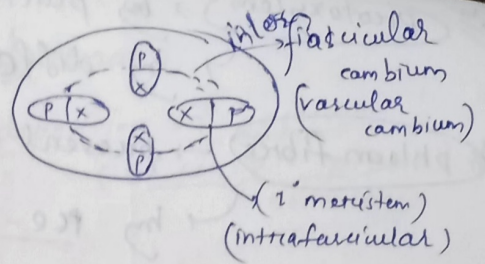 inter
fascicular
cambium
(vascular
cambium)
P
X
P X
X P
X
P
(1° meristem)
(intrafascicular)